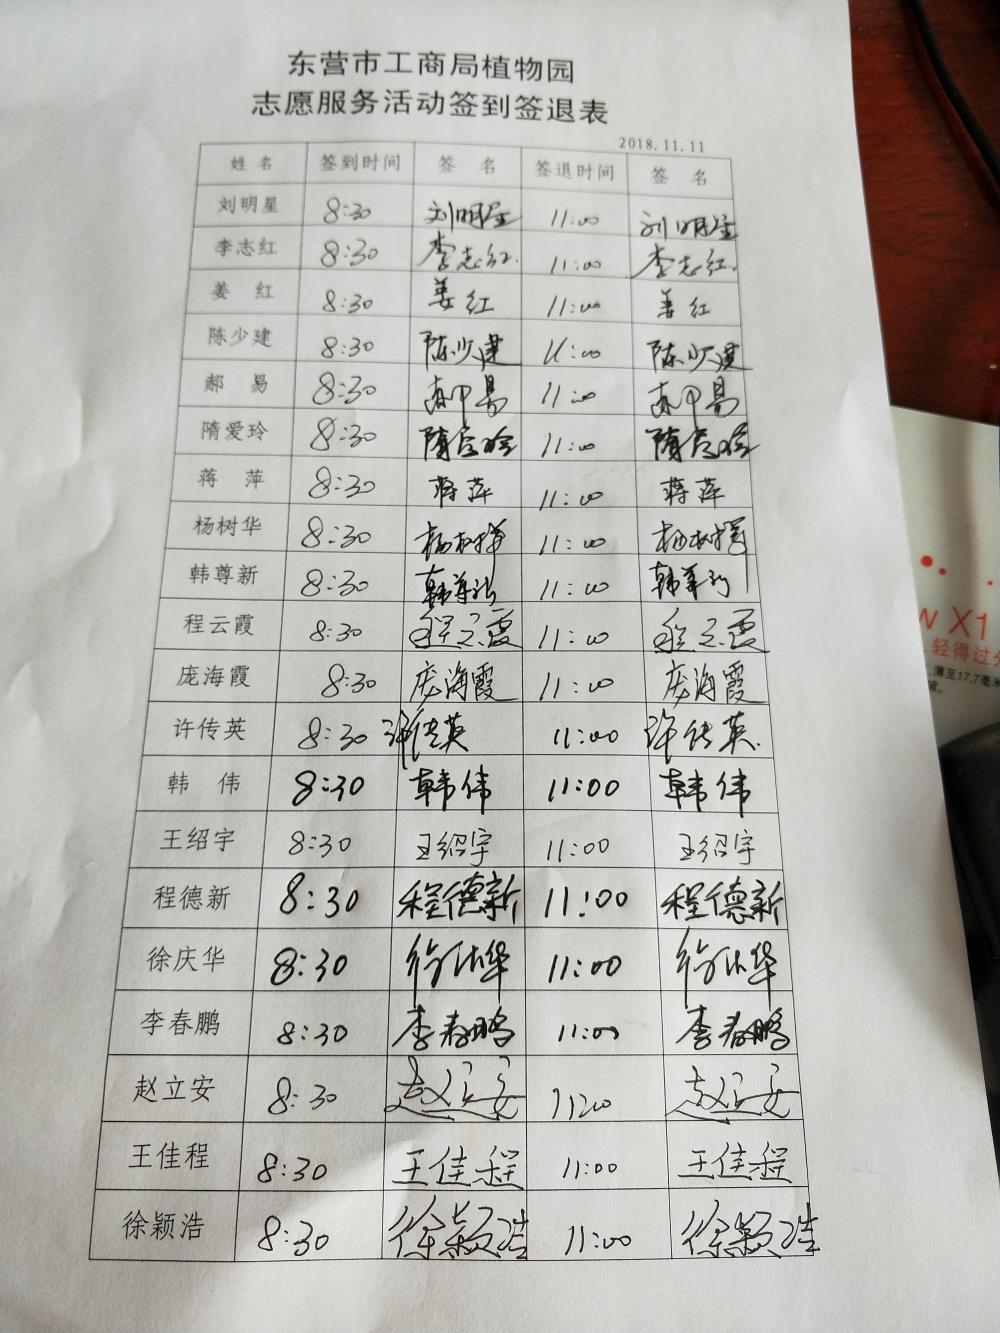 东营市工商局植物园
志愿服务活动签到签退表
2018.11.11
姓名 签到时间 签名 签退时间 签名
刘明星 8:30 刘明星 11:00 刘明星
李志红 8:30 李志红 11:00 李志红
姜红 8:30 姜红 11:00 姜红
陈少建 8:30 陈少建 11:00 陈少建
郝易 8:30 郝易 11:00 郝易
隋爱玲 8:30 隋爱玲 11:00 隋爱玲
蒋萍 8:30 蒋萍 11:00 蒋萍
杨树华 8:30 杨树华 11:00 杨树华
韩尊新 8:30 韩尊新 11:00 韩尊新
程云霞 8:30 程云霞 11:00 程云霞
庞海霞 8:30 庞海霞 11:00 庞海霞
许传英 8:30 许传英 11:00 许传英
韩伟 8:30 韩伟 11:00 韩伟
王绍宇 8:30 王绍宇 11:00 王绍宇
程德新 8:30 程德新 11:00 程德新
徐庆华 8:30 徐庆华 11:00 徐庆华
李春鹏 8:30 李春鹏 11:00 李春鹏
赵立安 8:30 赵立安 11:00 赵立安
王佳程 8:30 王佳程 11:00 王佳程
徐颖浩 8:30 徐颖浩 11:00 徐颖浩
w X1
轻得过分
薄至17.7毫米